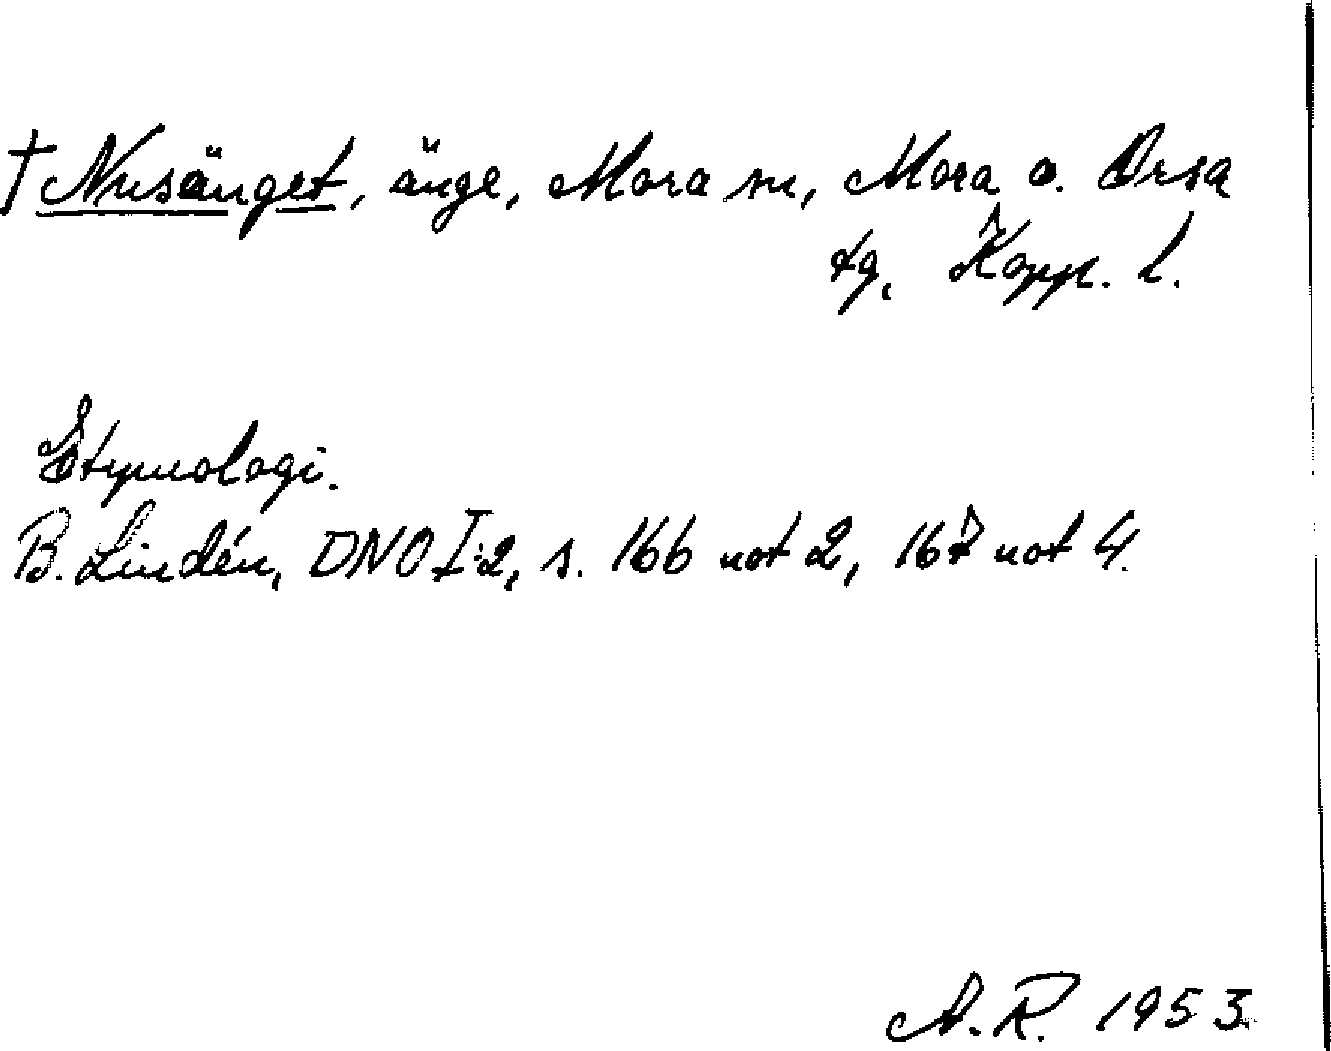 † Nusänget, änge, Mora sn, Mora o. Orsa
tg, Kopp. l.
Etymologi.
B. Lindén, DNO I:2, s. 166 not 2, 167 not 4.
A. R. 1953.